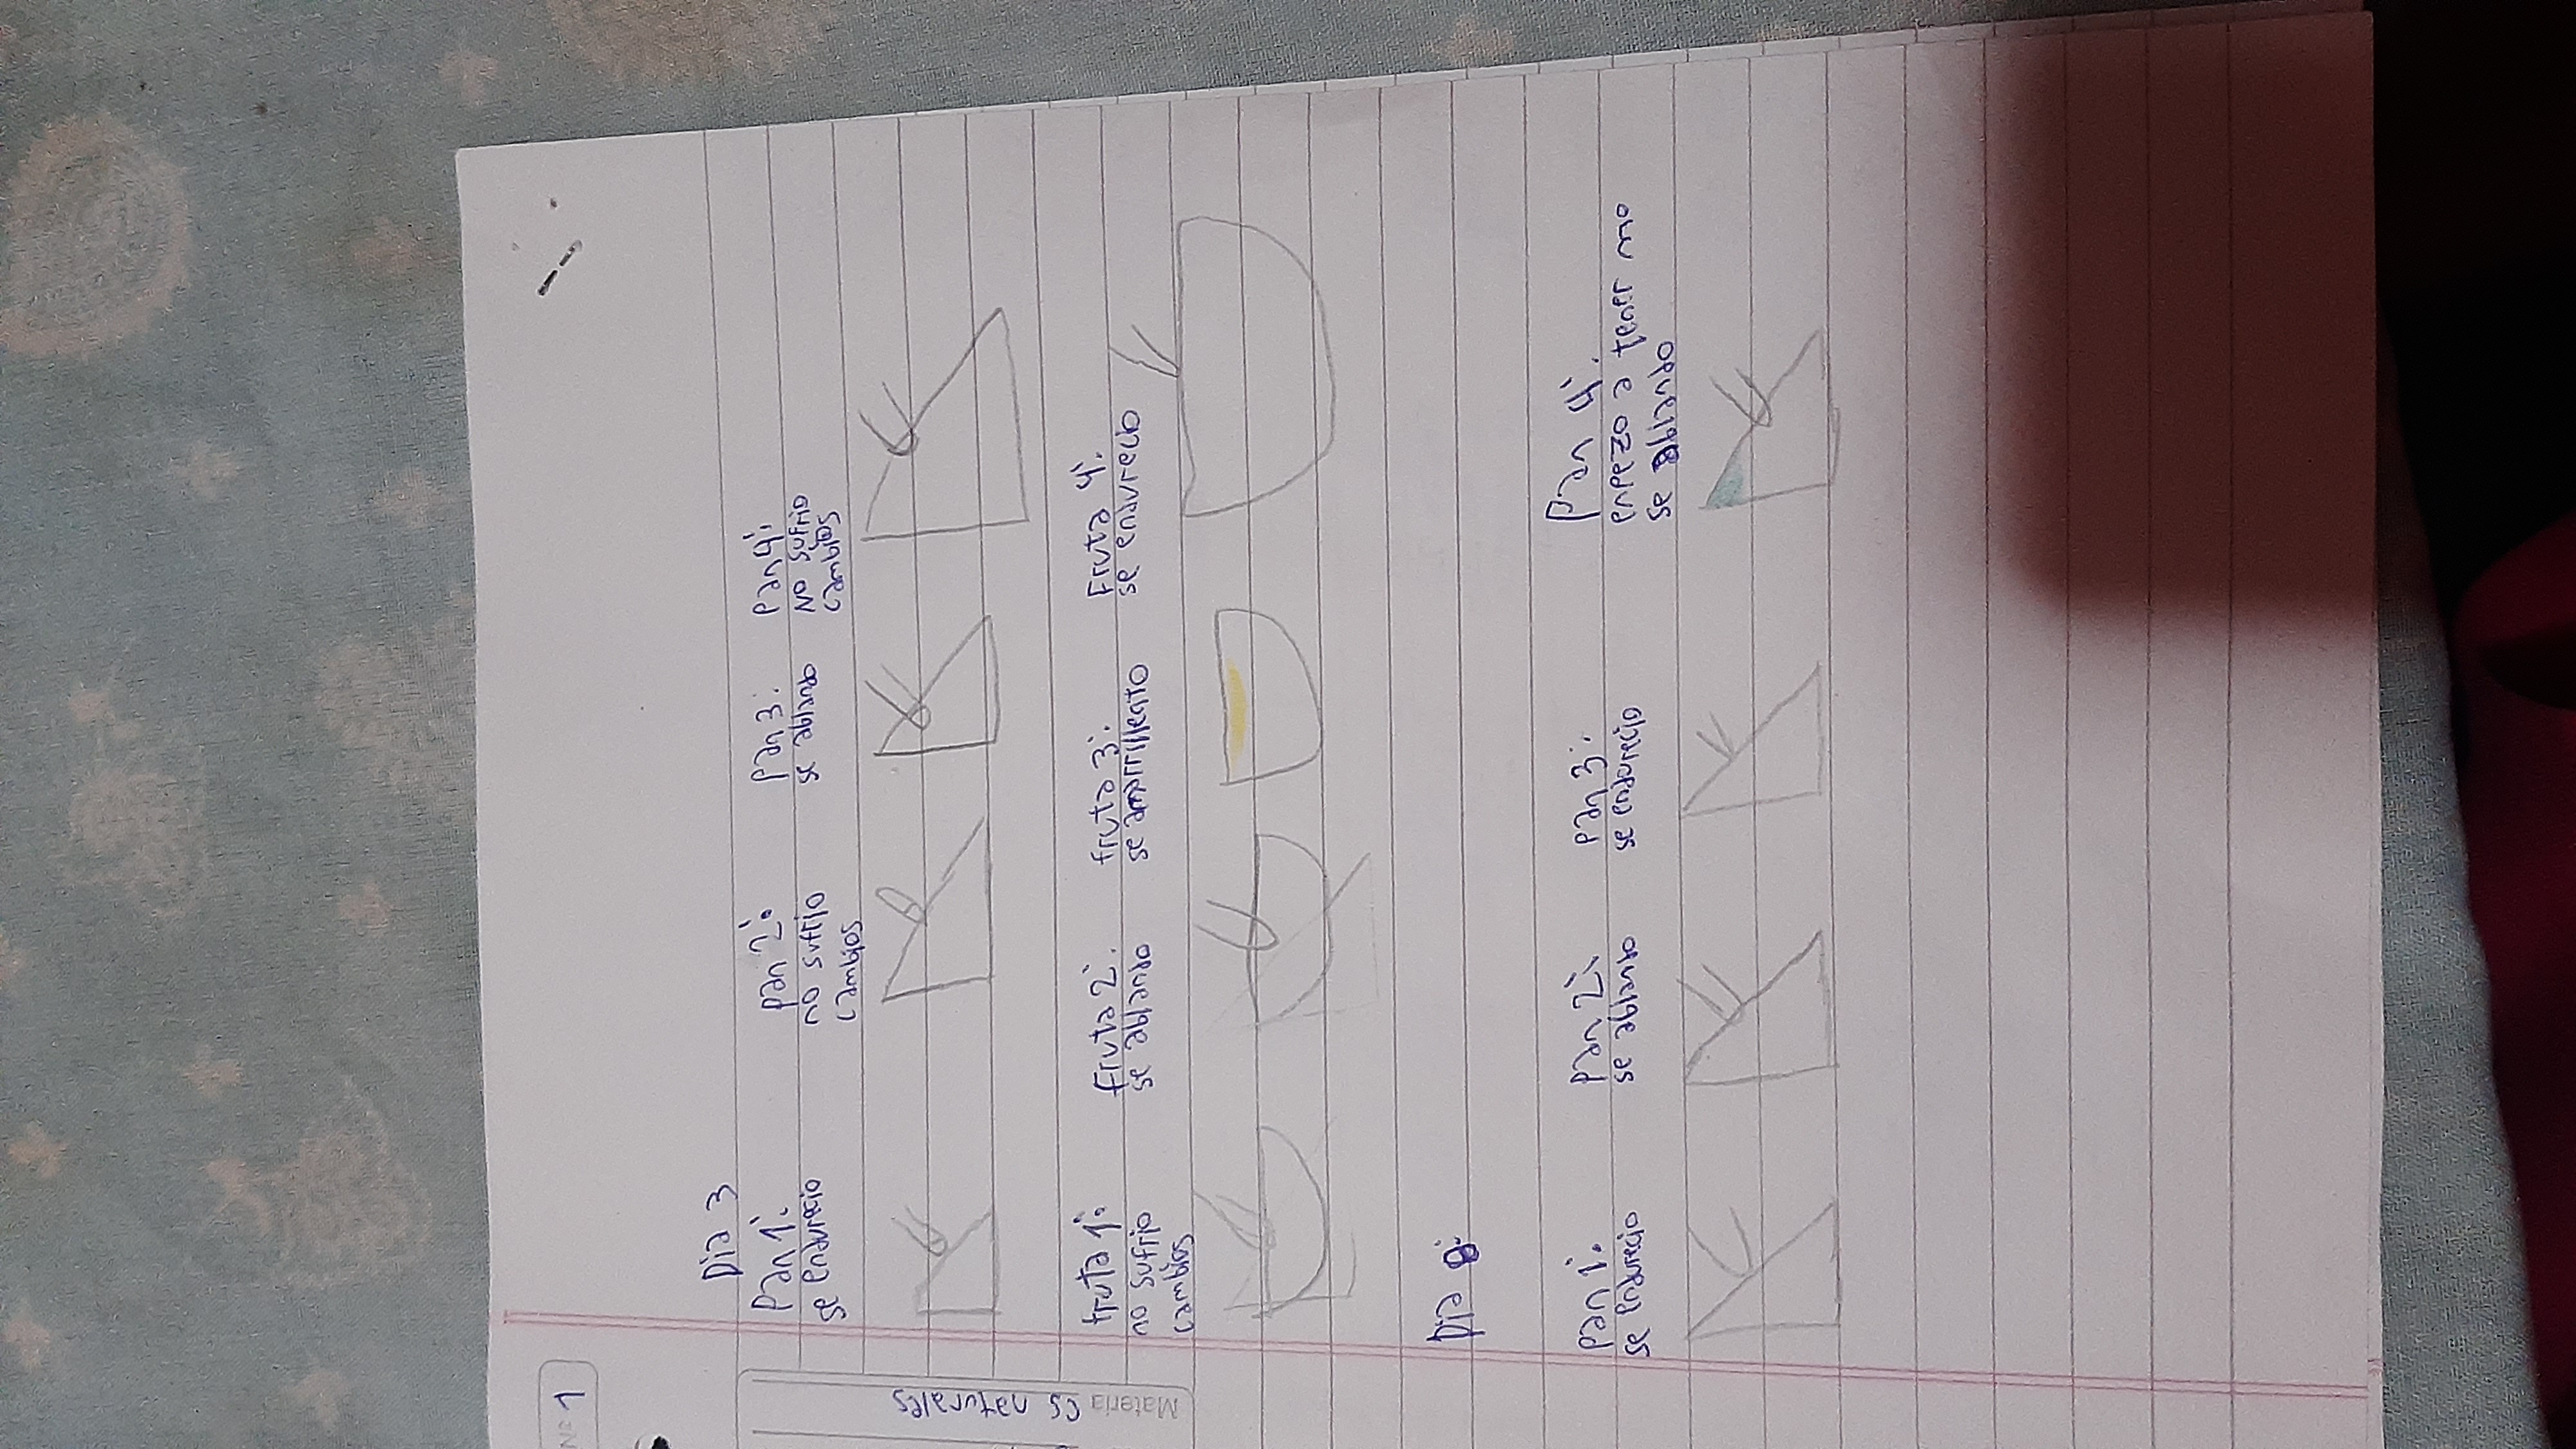 N° 1
Materia cs naturales
Dia 3
Pan 1: pan 2: pan 3: pan 4:
se endurecio no sufrio se ablando No sufrio
cambios cambios
fruta 1: fruta 2: fruta 3: Fruta 4:
no sufrio se ablando se amarillento se endurecio
cambios
Dia 8:
pan 1: pan 2: pan 3: Pan 4:
se endurecio se ablando se endurecio empezo a tener mo
se ablando